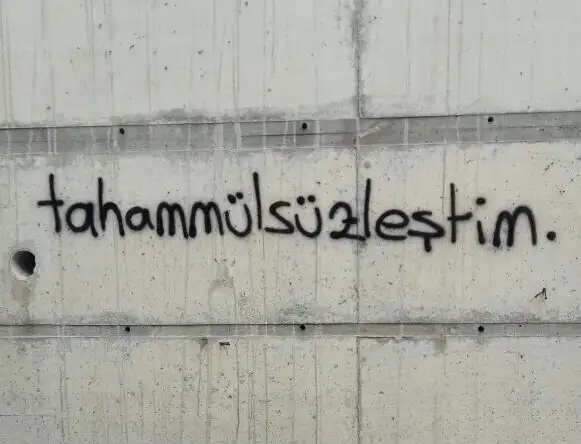 tahammülsüzleştim.